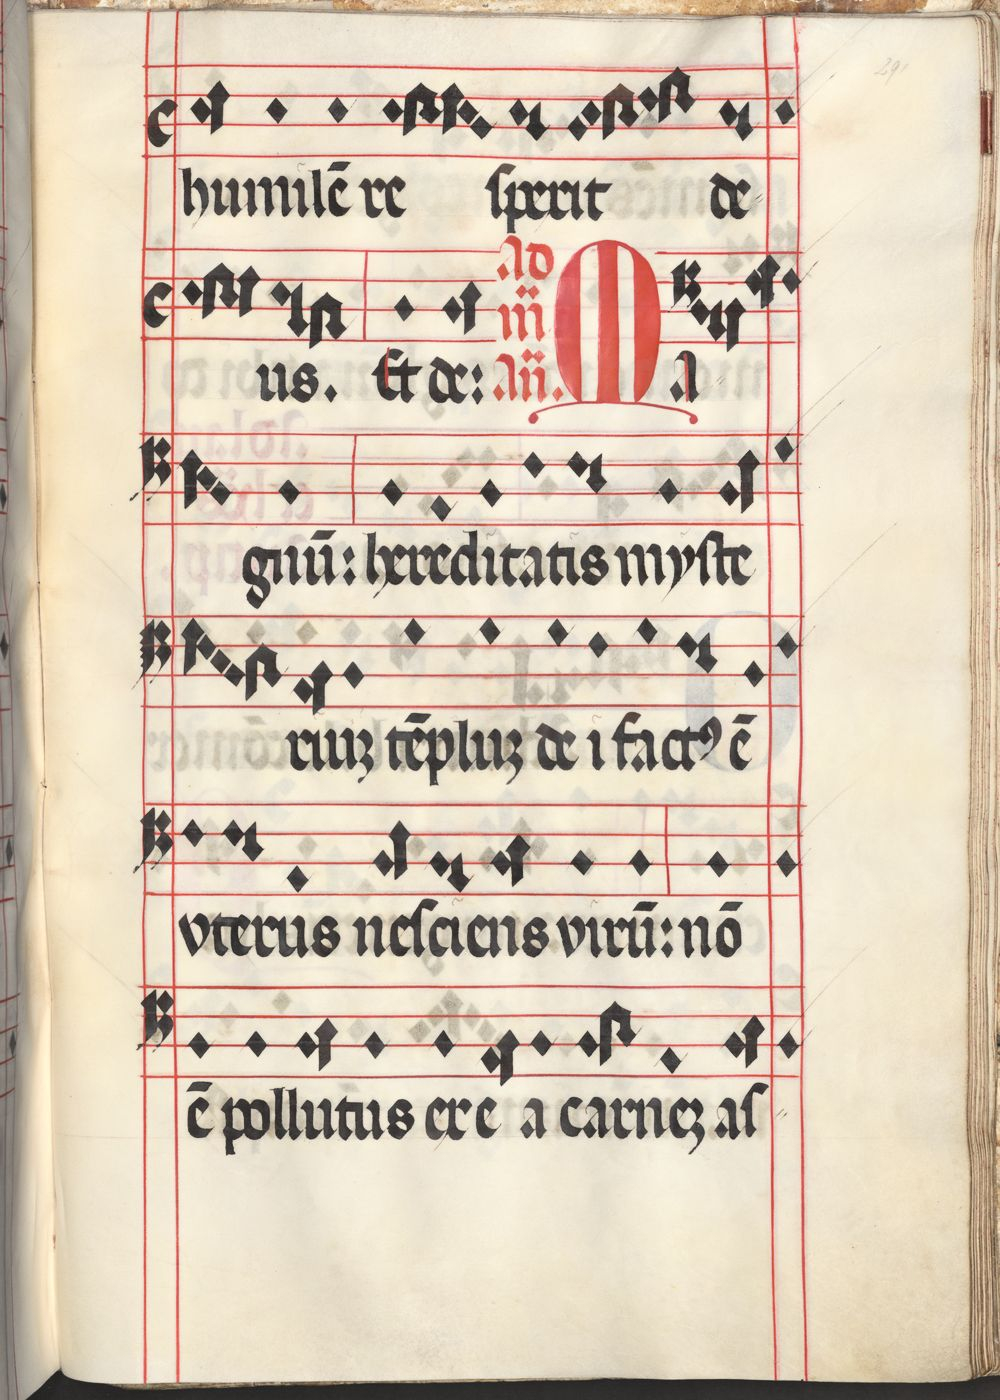 humilē re sperit de
us. Et de: Ad m̄ añ. Ma
gnū: hereditatis myste
riuꝫ tēpluꝫ de i factꝰ ē
vterus nesciens virū: nō
ē pollutus ex e a carneꝫ as